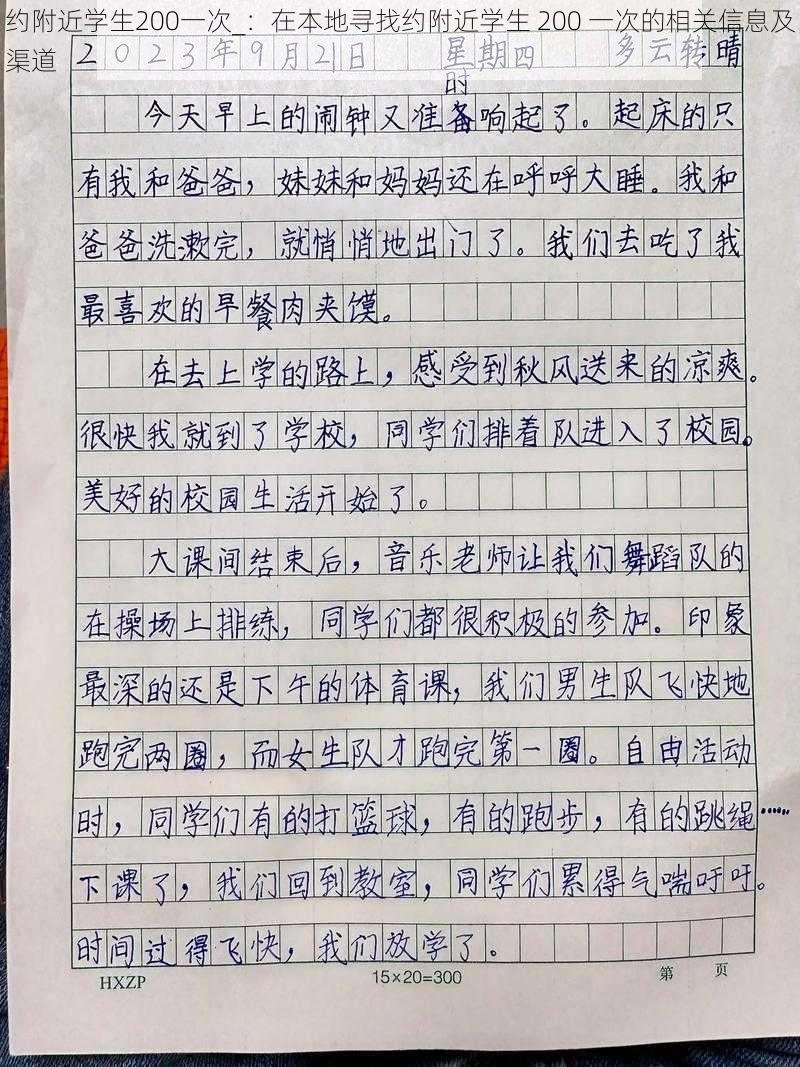 约附近学生200一次_：在本地寻找约附近学生 200 一次的相关信息及
渠道
2023年9月21日 星期四 多云转晴
时
今天早上的闹钟又准备响起了。起床的只
有我和爸爸，妹妹和妈妈还在呼呼大睡。我和
爸爸洗漱完，就悄悄地出门了。我们去吃了我
最喜欢的早餐肉夹馍。
在去上学的路上，感受到秋风送来的凉爽。
很快我就到了学校，同学们排着队进入了校园。
美好的校园生活开始了。
大课间结束后，音乐老师让我们舞蹈队的
在操场上排练，同学们都很积极的参加。印象
最深的还是下午的体育课，我们男生队飞快地
跑完两圈，而女生队才跑完第一圈。自由活动
时，同学们有的打篮球，有的跑步，有的跳绳……
下课了，我们回到教室，同学们累得气喘吁吁。
时间过得飞快，我们放学了。
HXZP 15×20=300 第 页